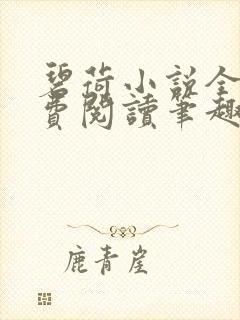 碧荷小说全
費閱讀筆趣
鹿青崖